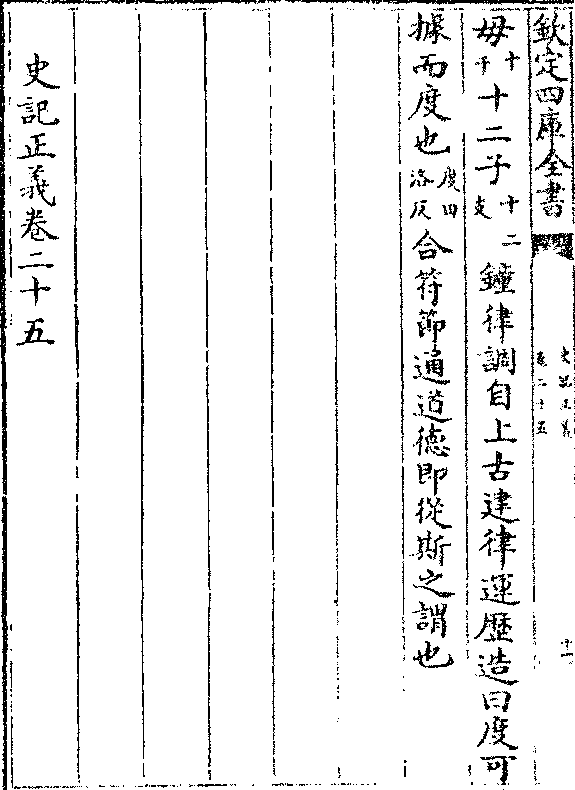 欽定四庫全書
史記正義
卷二十五
十一
毋十干十二子十二支鐘律調自上古建律運歷造日度可
據而度也度田洛反合符節通道德即從斯之謂也
史記正義卷二十五